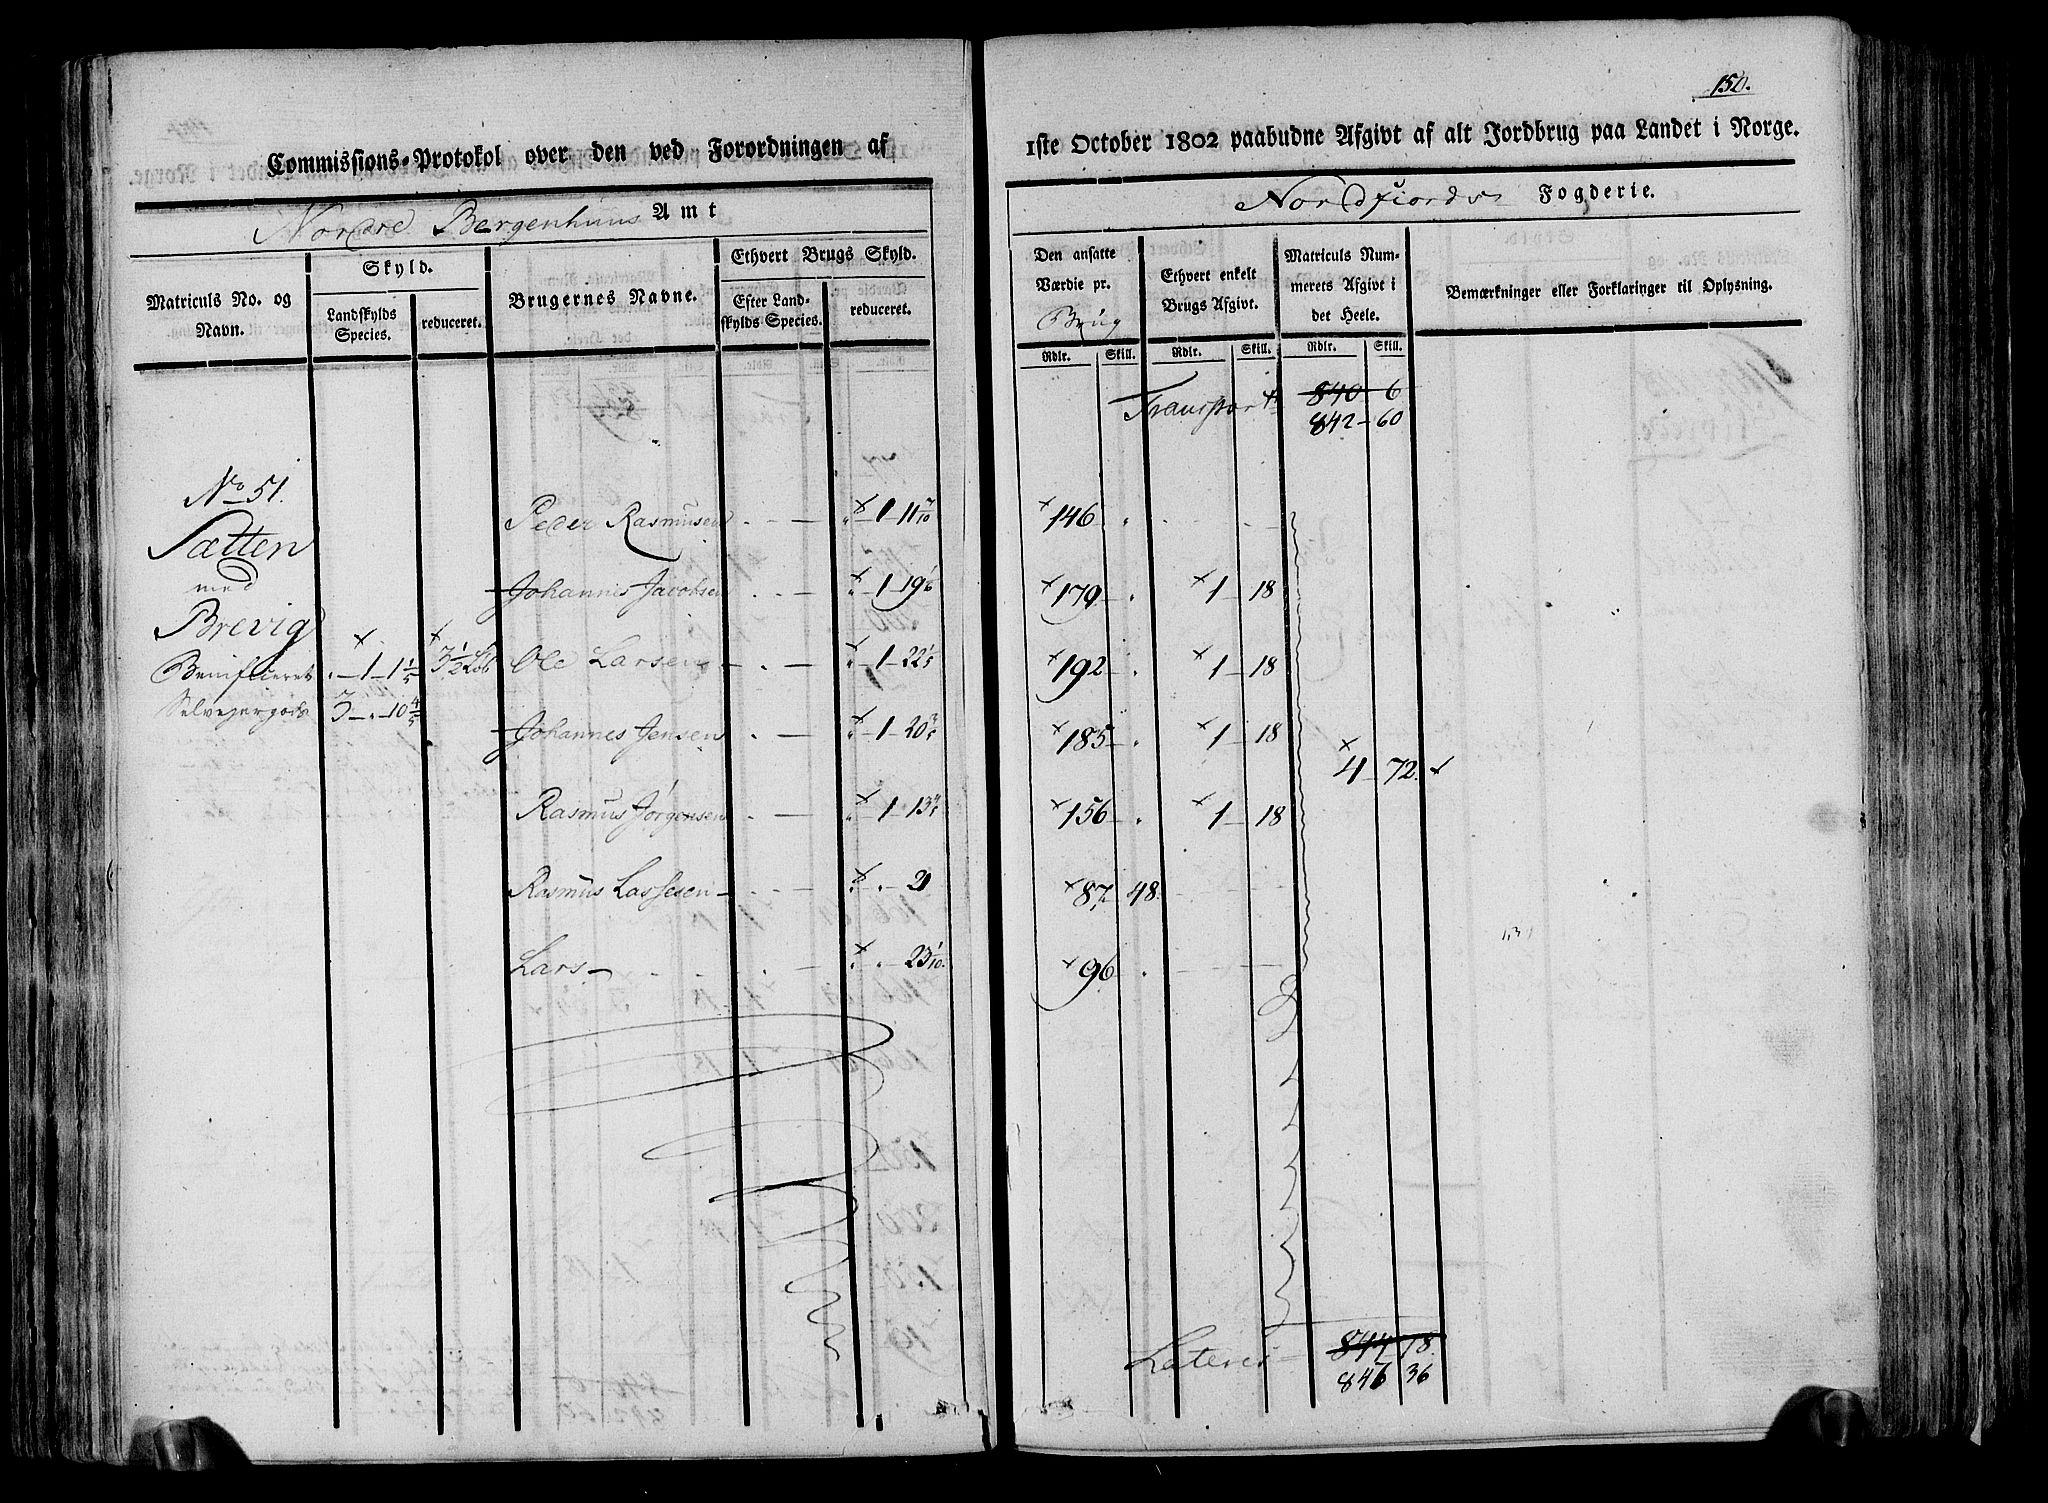 Commissions-Protokol over den ved Forordningen af
Nordre Bergenhuus Amt
Matriculs No. og Navn.
Skyld.
Landskylds Species.
reduceret.
Brugernes Navne.
Ethvert Brugs Skyld.
Efter Landskylds Species.
reduceret.
No 51.
Sætten
med
Brevig
Benificeret " 1 1 1/5 3 1/2 Løb
Selveyergods 3 " 10 4/5
Peder Rasmusen " 1 11 7/10
Johannes Jacobsen " 1 19 1/6
Ole Larsen " 1 22 1/5
Johannes Jensen " 1 20 3/5
Rasmus Jørgensen " 1 13 4/5
Rasmus Lassesen " " 21
Lars " " 23 1/10
150.
1ste October 1802 paabudne Afgivt af alt Jordbrug paa Landet i Norge.
Nordfiords Fogderie.
Den ansatte Værdie pr. Brug
Ethvert enkelt Brugs Afgivt.
Matriculs Nummerets Afgivt i det Heele.
Bemærkninger eller Forklaringer til Oplysning.
Rdlr. Skill. Rdlr. Skill. Rdlr. Skill.
Transport 840 6
842 60
146 "
179 " 1 18
192 " 1 18
185 " 1 18
4 72.
156 " 1 18
87 48
96 "
Lateris 844 78
847 36